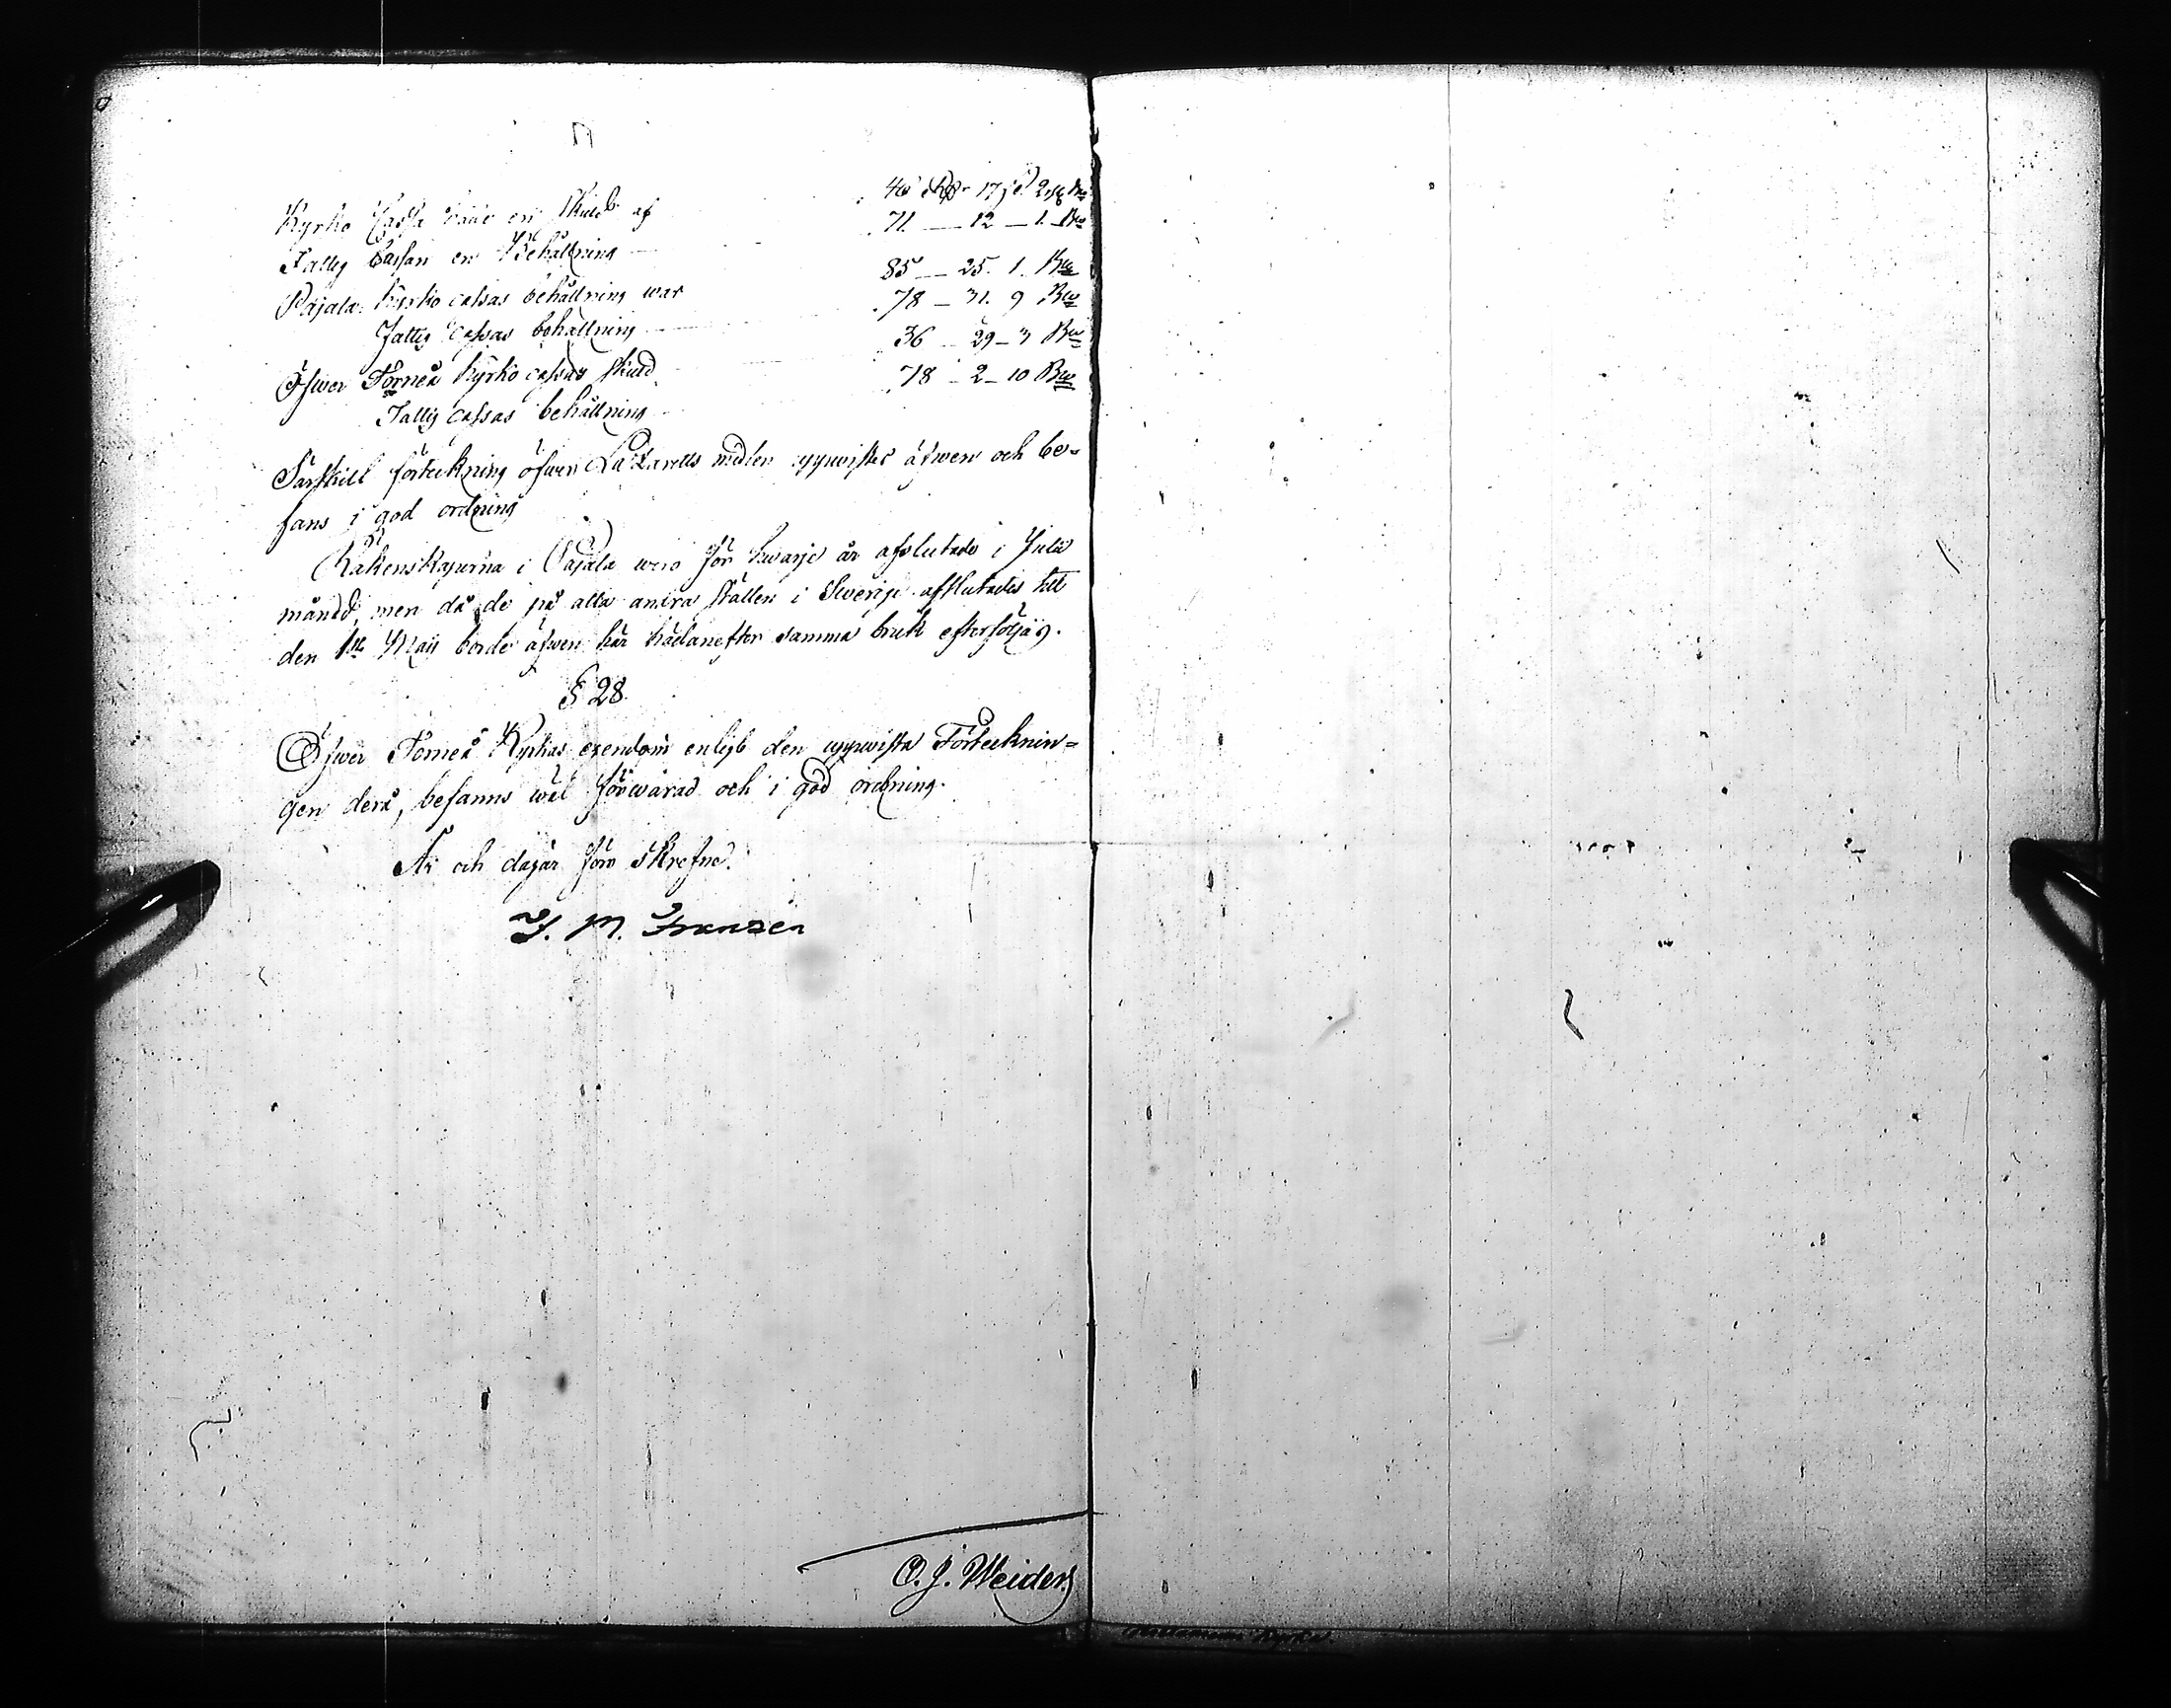 Kyrko Cassa hade en skuld af 40 Rdr 17 sk 2 rst Bco
Fattig Cassan en Behållning 71 — 12 — 1. Bco
Pajala Kyrko cassas behållning war 85 — 25. 1. Bco
Fattig cassas behållning 78 — 31. 9 Bco
Öfwer Torneå Kyrko cassas skuld 36 — 29 — 3 Bco
Fattig cassas behållning 78 — 2 — 10 Bco
Särskild förteckning öfwer Lazaretts medlen uppwistes äfwen och be=
fans i god ordning
Räkenskaperna i Pajala woro för hwarje år afslutade i Julii
månad, men då de på alla andra ställen i Swerige afslutades till
den 1ste Maij borde äfwen här hädanefter samma bruk efterföljas.
§ 28.
Öfwer Torneå Kyrkas egendom enligt den uppwista Förtecknin=
gen derå, befanns wäl förwarad och i god ordning.
År och dagar som skrefne.
F. M. Franzén
O. J. Weiders